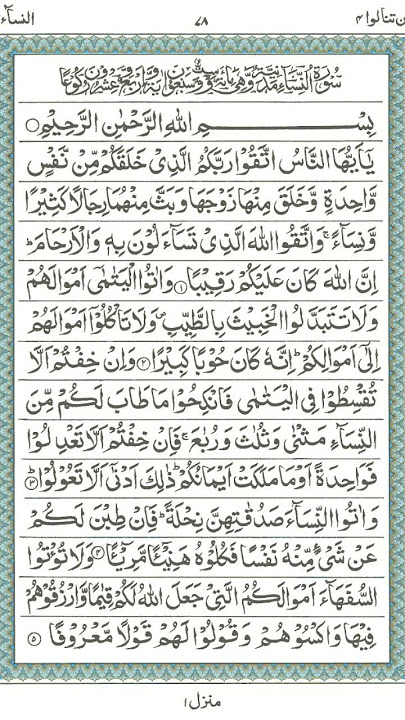 لن تنالوا ٤ ٧٨ النسآء
سُوْرَةُ النِّسَآءِ مَدَنِيَّةٌ وَّهِيَ مِائَةٌ وَّسِتٌّ وَّسَبْعُوْنَ اٰيَةً وَّاَرْبَعٌ وَّعِشْرُوْنَ رُكُوْعًا
بِسْمِ اللهِ الرَّحْمٰنِ الرَّحِيْمِ ○
يٰۤاَيُّهَا النَّاسُ اتَّقُوْا رَبَّكُمُ الَّذِيْ خَلَقَكُمْ مِّنْ نَّفْسٍ
وَّاحِدَةٍ وَّخَلَقَ مِنْهَا زَوْجَهَا وَبَثَّ مِنْهُمَا رِجَالًا كَثِيْرًا
وَّنِسَآءً ۚ وَاتَّقُوا اللهَ الَّذِيْ تَسَآءَلُوْنَ بِهٖ وَالْاَرْحَامَ ؕ
اِنَّ اللهَ كَانَ عَلَيْكُمْ رَقِيْبًا ۝۱ وَاٰتُوا الْيَتٰمٰۤى اَمْوَالَهُمْ
وَلَا تَتَبَدَّلُوا الْخَبِيْثَ بِالطَّيِّبِ ۪ وَلَا تَاْكُلُوْۤا اَمْوَالَهُمْ
اِلٰۤى اَمْوَالِكُمْ ؕ اِنَّهٗ كَانَ حُوْبًا كَبِيْرًا ۝۲ وَاِنْ خِفْتُمْ اَلَّا
تُقْسِطُوْا فِي الْيَتٰمٰى فَانْكِحُوْا مَا طَابَ لَكُمْ مِّنَ
النِّسَآءِ مَثْنٰى وَثُلٰثَ وَرُبٰعَ ۚ فَاِنْ خِفْتُمْ اَلَّا تَعْدِلُوْا
فَوَاحِدَةً اَوْ مَا مَلَكَتْ اَيْمَانُكُمْ ؕ ذٰلِكَ اَدْنٰۤى اَلَّا تَعُوْلُوْا ؕ ۝۳
وَاٰتُوا النِّسَآءَ صَدُقٰتِهِنَّ نِحْلَةً ؕ فَاِنْ طِبْنَ لَكُمْ
عَنْ شَيْءٍ مِّنْهُ نَفْسًا فَكُلُوْهُ هَنِيْٓئًا مَّرِيْٓئًا ۝۴ وَلَا تُؤْتُوا
السُّفَهَآءَ اَمْوَالَكُمُ الَّتِيْ جَعَلَ اللهُ لَكُمْ قِيٰمًا وَّارْزُقُوْهُمْ
فِيْهَا وَاكْسُوْهُمْ وَقُوْلُوْا لَهُمْ قَوْلًا مَّعْرُوْفًا ۝۵
منزل ۱